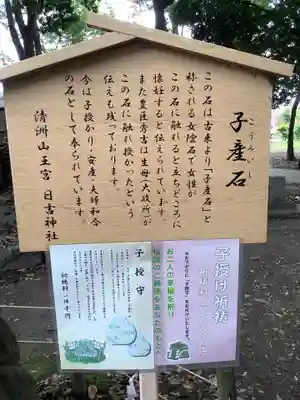 子産石
こうみいし
この石は古来より「子産石」と
称される女陰石で女性が
この石に触れると立ちどころに
懐妊すると伝えられています。
また豊臣秀吉は生母(大政所)が
この石に触れ授かったという
伝えも残っております。
今は子授かり・安産・夫婦和合
の石として奉られています。
清洲山王宮 日吉神社
子授け祈祷
お二人の幸福を祈り
子授守
初穂料 一体千円